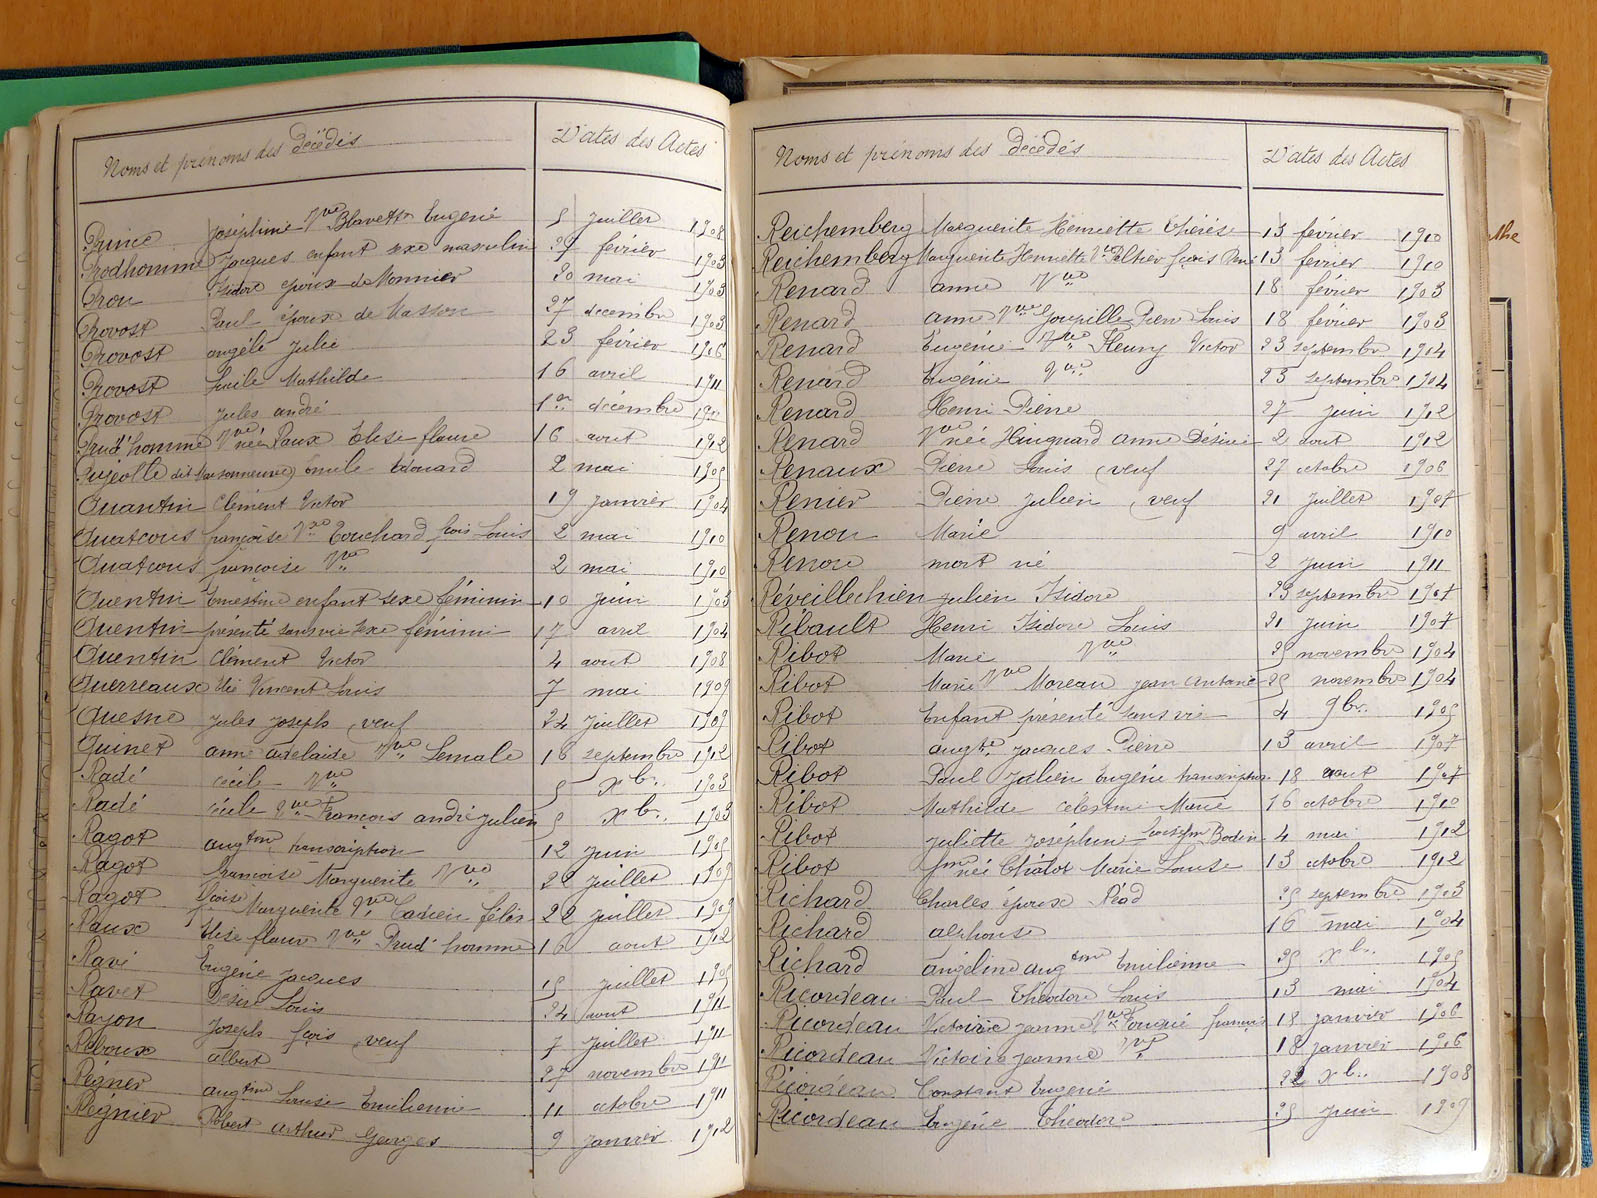 Noms et prénoms des Décédés Dates des Actes
Prince Joséphine Vve Eugène 5 juillet 1908
Prodhomme Jacques enfant sexe masculin 27 février 1903
Prou Isidore époux de Monnier 20 mai 1903
Provost Paul époux de Masson 27 décembre 1903
Provost angèle Julie 23 février 1906
Provost Mathilde 16 avril 1911
Provost Jules andré 1er décembre
Prud'homme Vve née Paux Elise flaure 16 aout 1912
Pujeolle dit Maisonneuve Emile Edouard 2 mai 1905
Quantin Clément Victor 19 janvier 1904
Quatrous françoise Vve Touchard fçois Louis 2 mai 1910
Quatrous françoise Vve 2 mai 1910
Quentin Ernestine enfant sexe féminin 10 juin 1903
Quentin présenté sans vie sexe féminin 17 avril 1904
Quentin Clément Victor 4 aout 1908
Querreaux Vincent Louis 7 mai 1909
Quesne Jules Joseph veuf 24 juillet 1909
Quinet anne adelaide Vve Lemale 18 septembre 1912
Radé cecile Vve 5 xbre 1903
Radé cécile Vve François andré Julien 5 xbre 1903
Ragot augtin transcription 12 juin 1905
Ragot françoise Marguerite Vve 22 juillet 1909
Ragot fçoise Marguerite Vve félix 22 juillet 1909
Paux Elise flaure Vve Prud'homme 16 aout 1912
Ravi Eugène Jacques 15 juillet 1905
Ravet Désiré Louis 24 aout 1911
Rayon Joseph fçois veuf 7 juillet 1911
Reboux albert 27 novembre 1911
Régner augtine Louise Emilienne 11 octobre 1911
Régnier Robert arthur Georges 9 janvier 1912
Noms et prénoms des Décédés Dates des Actes
Reichemberg Marguerite Henriette Thérèse 13 février 1910
Reichemberg Marguerite Henriette Vve Pelhier fçois René 13 février 1910
Renard anne Vve 18 février 1903
Renard anne Vve Goupille Pierre Louis 18 février 1903
Renard Eugénie Vve Fleury Victor 23 septembre 1904
Renard Eugénie Vve 23 septembre 1904
Renard Henri Pierre 27 juin 1912
Renard Vve née Huignard anne Désirée 2 aout 1912
Renaux Pierre Louis veuf 27 octobre 1906
Renier Pierre Julien veuf 21 juillet 1907
Renou Marie 9 avril 1910
Renou mort né 2 juin 1911
Réveillechien Julien Isidore 23 septembre 1907
Ribault Henri Isidore Louis 21 juin 1907
Ribot Marie Vve 25 novembre 1904
Ribot Marie Vve Moreau Jean Antoine 25 novembre 1904
Ribot Enfant présenté sans vie 4 9bre 1905
Ribot augte Jacques Pierre 13 avril 1907
Ribot Paul Julien Eugène transcription 18 aout 1907
Ribot Mathilde célestine Marie 16 octobre 1910
Ribot Juliette Joséphine Bodin 4 mai 1912
Ribot fme née Chalot Marie Louise 13 octobre 1912
Richard Charles époux Réod 25 septembre 1903
Richard alphonse 16 mai 1904
Richard angéline augtine Emilienne 25 xbre 1905
Ricordeau Paul Théodore Louis 13 mai 1904
Ricordeau Victoire Jeanne Vve françois 18 janvier 1906
Ricordeau Victoire Jeanne Vve 18 janvier 1906
Ricordeau Constant Eugène 22 xbre 1908
Ricordeau Eugène Théodore 25 juin 1909